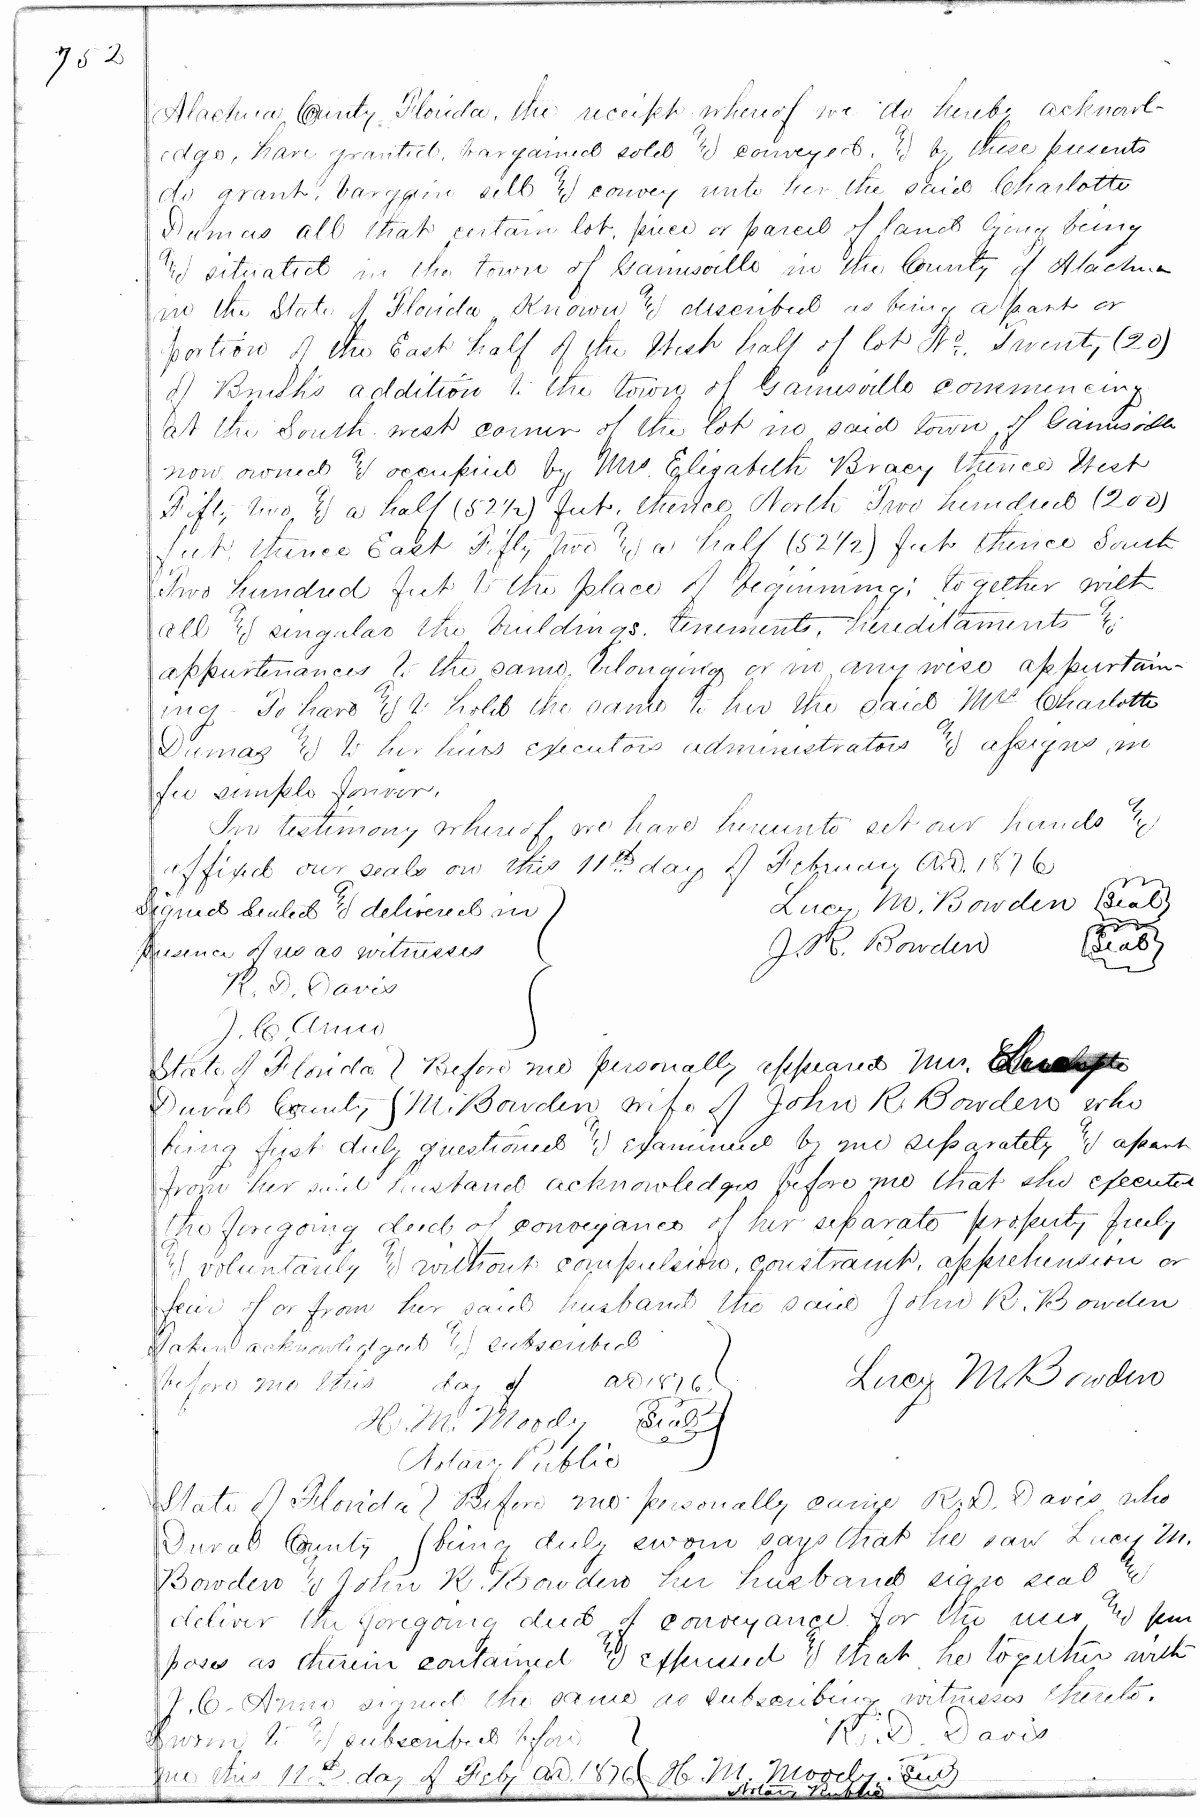 752
Alachua County Florida, the receipt whereof we do hereby acknowl-
edge, have granted, bargained sold & conveyed, & by these presents
do grant, bargain sell & convey unto her the said Charlotte
Dumas all that certain lot, piece or parcel of land lying being
& situated in the town of Gainesville in the County of Alachua
in the State of Florida Known & described as being a part or
portion of the East half of the West half of lot No. Twenty (20)
of Brush's addition to the town of Gainesville commencing
at the South west corner of the lot in said town of Gainesville
now owned & occupied by Mrs. Elizabeth Bracy thence West
Fifty two & a half (52 1/2) feet, thence North Two hundred (200)
feet, thence East Fifty two & a half (52 1/2) feet thence South
Two hundred feet to the place of beginning; together with
all & singular the buildings, tenements, hereditaments &
appurtenances to the same, belonging or in any wise appurtain-
ing - To have & to hold the same to her the said Mrs Charlotte
Dumas & to her heirs executors administrators & assigns in
fee simple forever.
In testimony whereof we have hereunto set our hands &
affixed our seals on this 11th day of February A.D. 1876
Signed Sealed & delivered in Lucy M. Bowden (Seal)
presence of us as witnesses J. R. Bowden (Seal)
R. D. Davis
J. C.
State of Florida } Before me personally appeared Mrs.
Duval County } M. Bowden wife of John R. Bowden who
being first duly questioned & examined by me separately & apart
from her said husband acknowledges before me that she executed
the foregoing deed of conveyance of her separate property freely
& voluntarily & without compulsion, constraint, apprehension or
fear of or from her said husband the said John R. Bowden
Taken acknowledged & subscribed
before me this day of AD 1876 Lucy M. Bowden
H. M. Moody (Seal)
Notary Public
State of Florida } Before me personally came R. D. Davis who
Duval County } being duly sworn says that he saw Lucy M.
Bowden & John R. Bowden her husband sign seal &
deliver the foregoing deed of conveyance for the uses & pur
poses as therein contained & expressed & that he together with
J. C. signed the same as subscribing witnesses thereto.
Sworn to & subscribed before R. D. Davis
me this 11th day of Feby AD. 1876 H. M. Moody. (Seal)
Notary Public